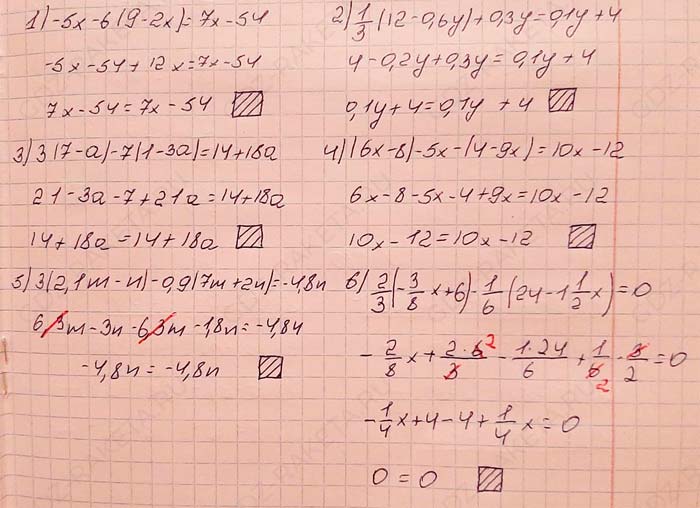 1) -5x-6(9-2x)=7x-54
-5x-54+12x=7x-54
7x-54=7x-54
2) 1/3 (12-0,6y)+0,3y=0,1y+4
4-0,2y+0,3y=0,1y+4
0,1y+4=0,1y+4
3) 3(7-a)-7(1-3a)=14+18a
21-3a-7+21a=14+18a
14+18a=14+18a
4) (6x-8)-5x-(4-9x)=10x-12
6x-8-5x-4+9x=10x-12
10x-12=10x-12
5) 3(2,1m-n)-0,9(7m+2n)=-4,8n
6,3m-3n-6,3m-1,8n=-4,8n
-4,8n=-4,8n
6) 2/3 (-3/8 x+6)-1/6 (24-1 1/2 x)=0
-2/8 x+ 2·6 2/3 - 1·24/6 + 1/6 2 · 3/2 =0
-1/4 x+4-4+1/4 x=0
0=0